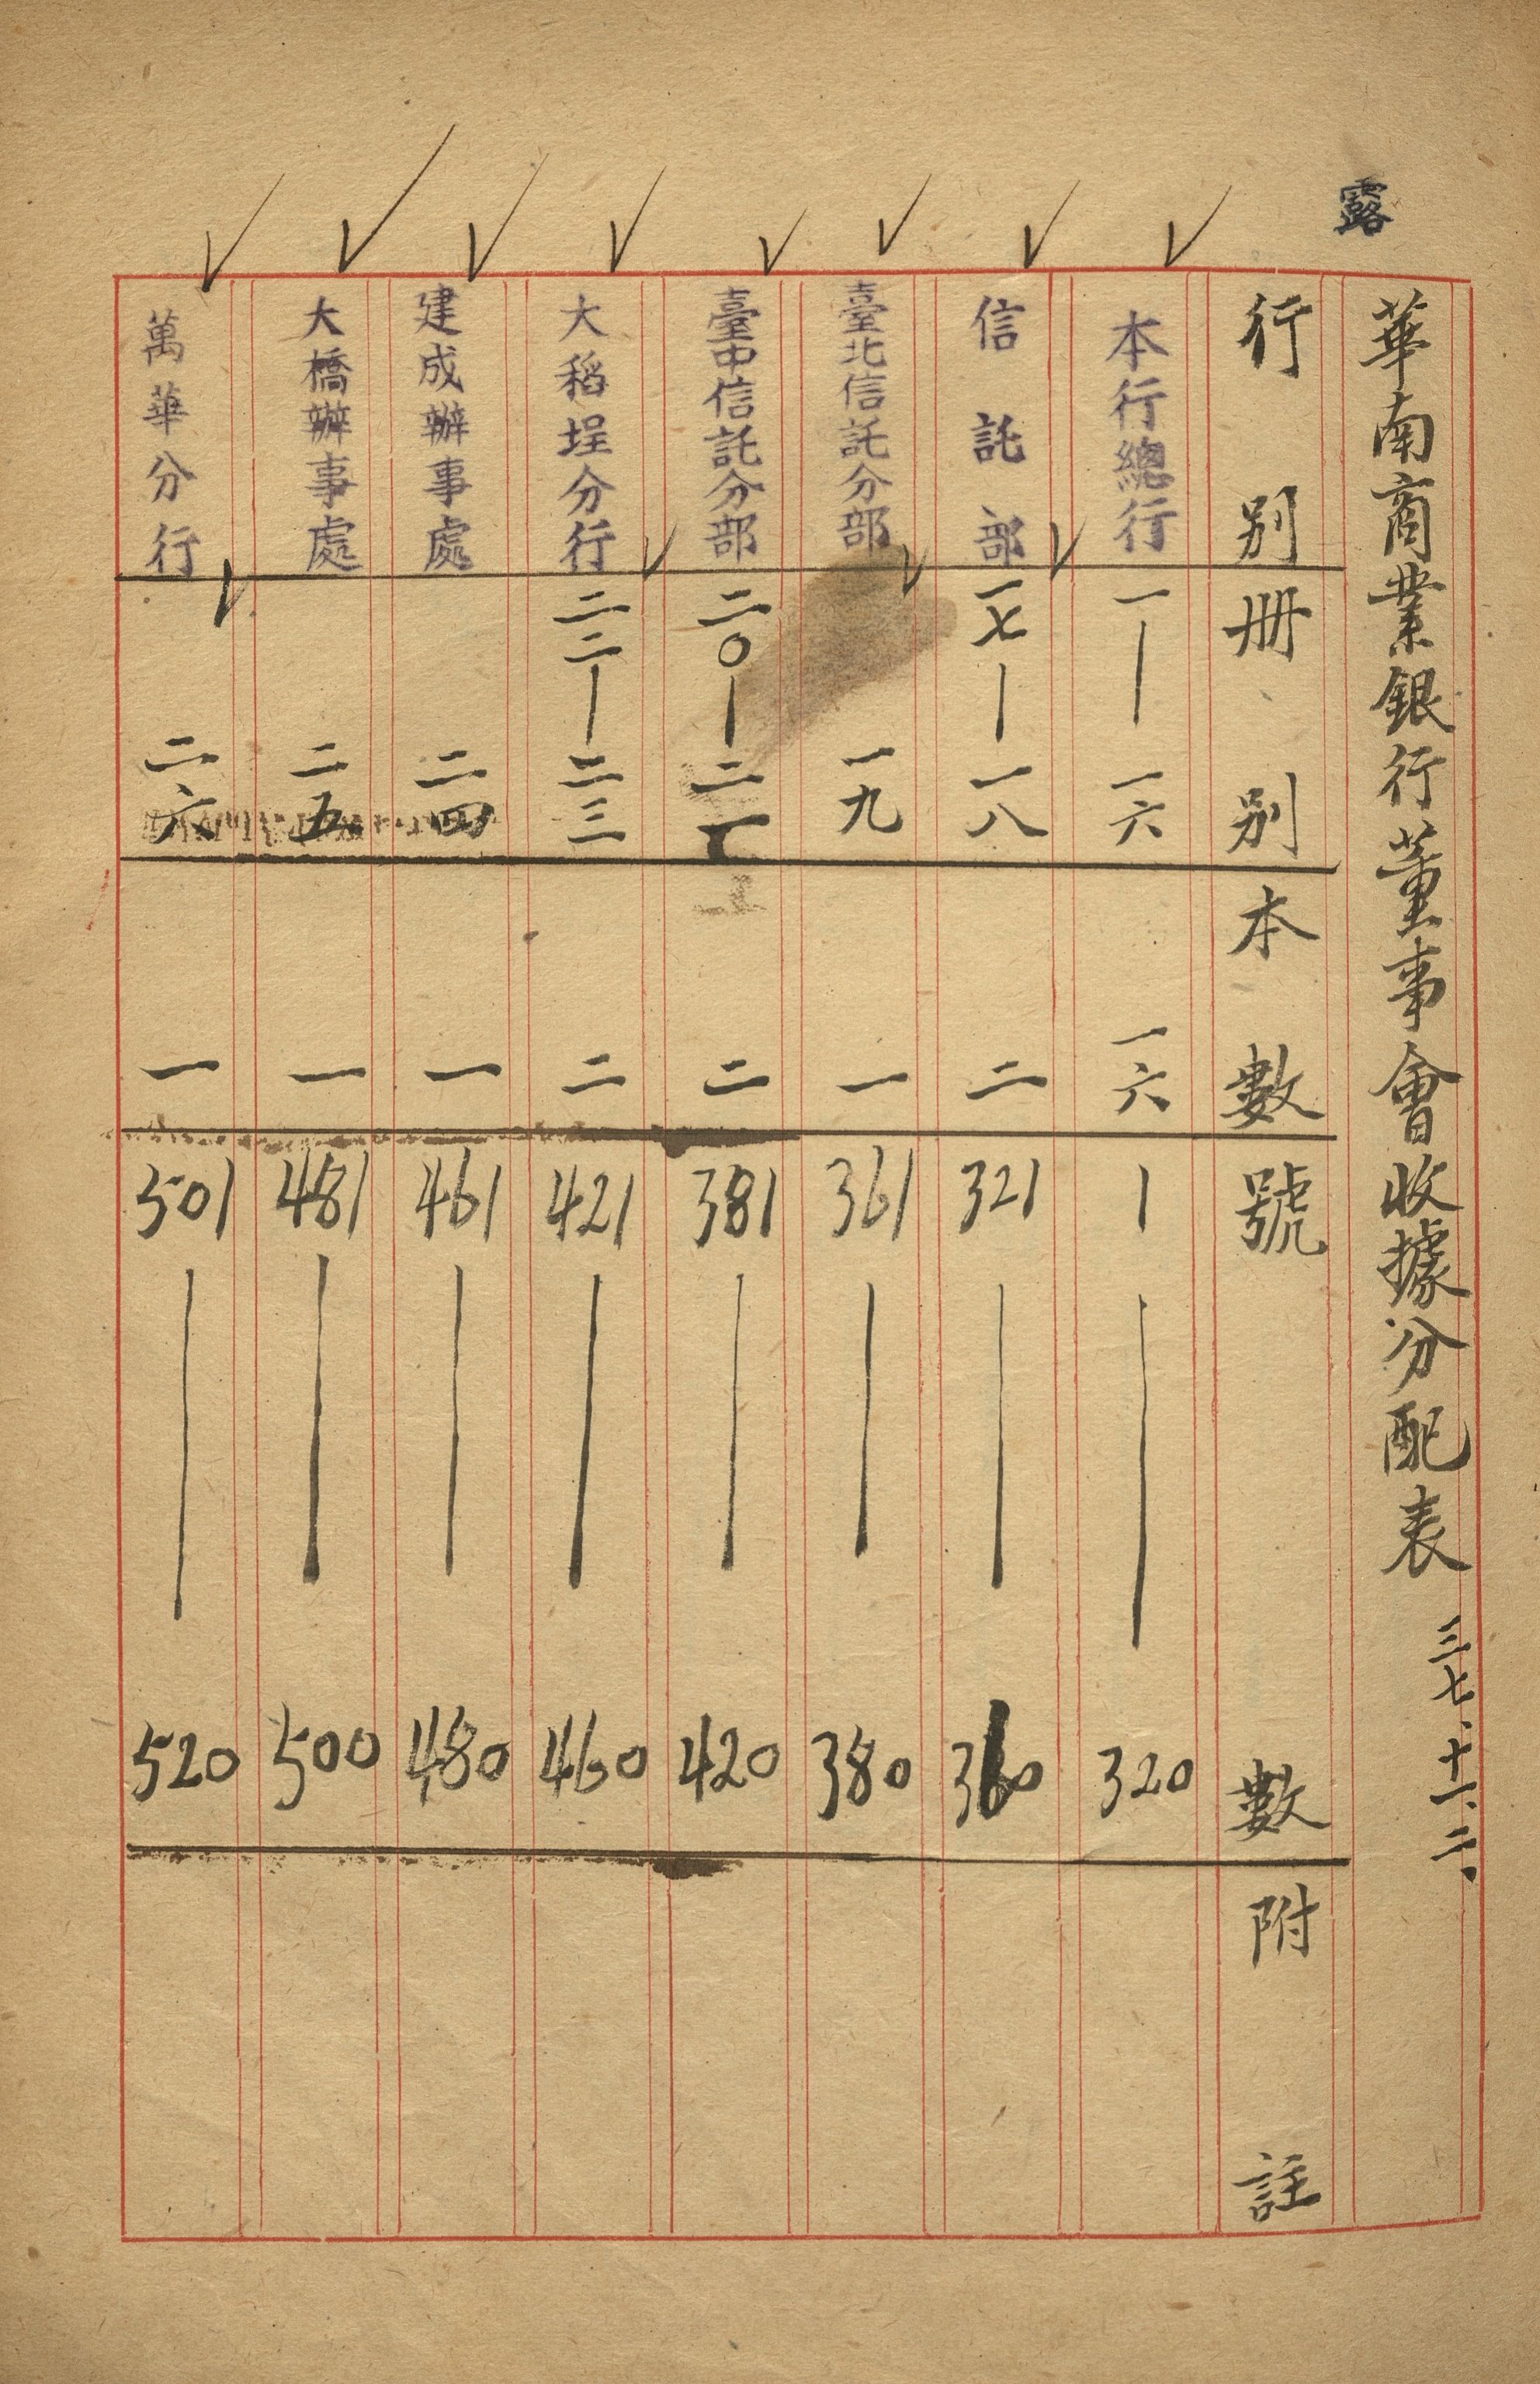 露
華南商業銀行董事會收據分配表 三七、十一、二、
行別 冊別 本數 號數 附註
本行總行 一—一六 一六 1—320
信託部 一七—一八 二 321—360
臺北信託分部 一九 一 361—380
臺中信託分部 二〇—二一 二 381—420
大稻埕分行 二二—二三 二 421—460
建成辦事處 二四 一 461—480
大橋辦事處 二五 一 481—500
萬華分行 二六 一 501—520